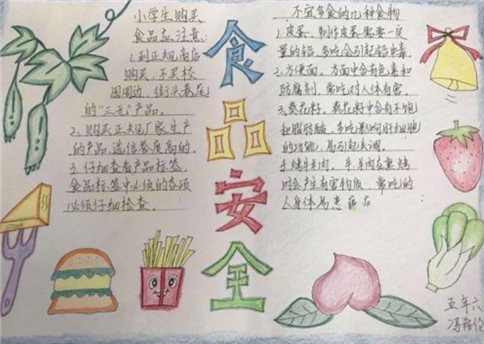 小学生购买
食品应注意：
1.到正规商店
购买，不买校
园周边、街头巷尾
的"三无"产品。
2、购买正规厂家生产
的产品，选信誉度高的
3.仔细查看产品标签
食品标签中必须的各项
必须仔细检查。
食品安全
不宜多食的几种食物
1.皮蛋，制作皮蛋需要一定
量的铅，多吃会引起铅中毒。
2.方便面，方面中含有色素和
防腐剂，常吃对人体有害。
3.葵花籽，葵花籽中含有不饱
和脂肪酸，多吃影响肝细胞
的功能，易引起
4.烤羊肉，牛、羊肉在熏烤
时会产生有害物质，常吃的
人身体易患
五年六
冯